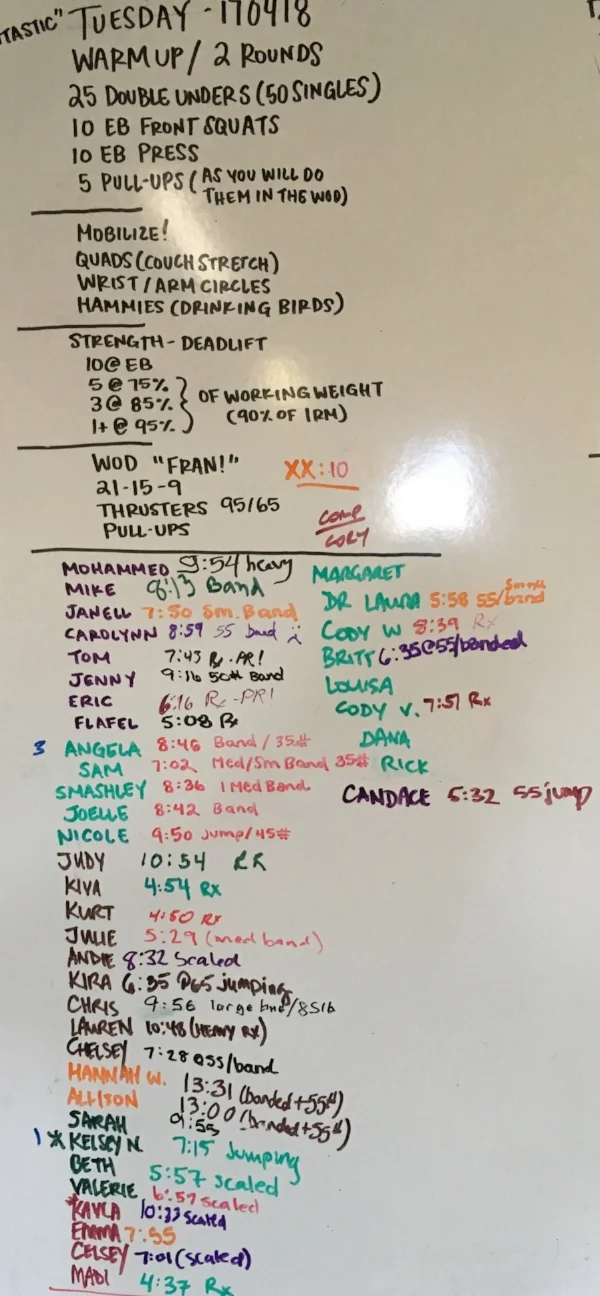 TASTIC" TUESDAY - 170418
WARMUP / 2 ROUNDS
25 DOUBLE UNDERS (50 SINGLES)
10 EB FRONT SQUATS
10 EB PRESS
5 PULL-UPS (AS YOU WILL DO
THEM IN THE WOD)
MOBILIZE!
QUADS (COUCH STRETCH)
WRIST / ARM CIRCLES
HAMMIES (DRINKING BIRDS)
STRENGTH - DEADLIFT
10 @ EB
5 @ 75%
3 @ 85%
1+ @ 95%
OF WORKING WEIGHT
(90% OF 1RM)
WOD "FRAN!"
21-15-9
THRUSTERS 95/65
PULL-UPS
XX:10
COMP
CORY
MOHAMMED 9:54 heavy
MIKE 8:13 Band
JANELL 7:50 Sm. Band
CAROLYNN 8:59 55 band
TOM 7:43 Rx-PR!
JENNY 9:16 50# Band
ERIC 6:16 Rx-PR!
FLAFEL 5:08 Rx
3 ANGELA 8:46 Band / 35#
SAM 7:02 Med/Sm Band 35#
SMASHLEY 8:36 1 Med Band
JOELLE 8:42 Band
NICOLE 9:50 Jump/45#
JUDY 10:54 RX
KIVA 4:54 RX
KURT 4:50 Rx
JULIE 5:29 (med band)
ANDIE 8:32 Scaled
KIRA 6:35 @65 jumping
CHRIS 9:56 large bnd/85lb
LAUREN 10:48 (HEAVY RX)
CHELSEY 7:28 @55/band
HANNAH W. 13:31 (banded + 55#)
ALLISON 13:00 (banded + 55#)
SARAH 9:55
1 * KELSEY N. 7:15 Jumping
BETH 5:57 scaled
VALERIE 6:57 Scaled
*KAYLA 10:33 Scaled
EMMA 7:55
CELSEY 7:01 (scaled)
MADI 4:37 Rx
MARGARET
DR LAURA 5:58 55/band
CODY W 8:39 Rx
BRITT 6:35@55/banded
LOUISA
CODY V. 7:51 Rx
DANA
RICK
CANDACE 5:32 55 jump